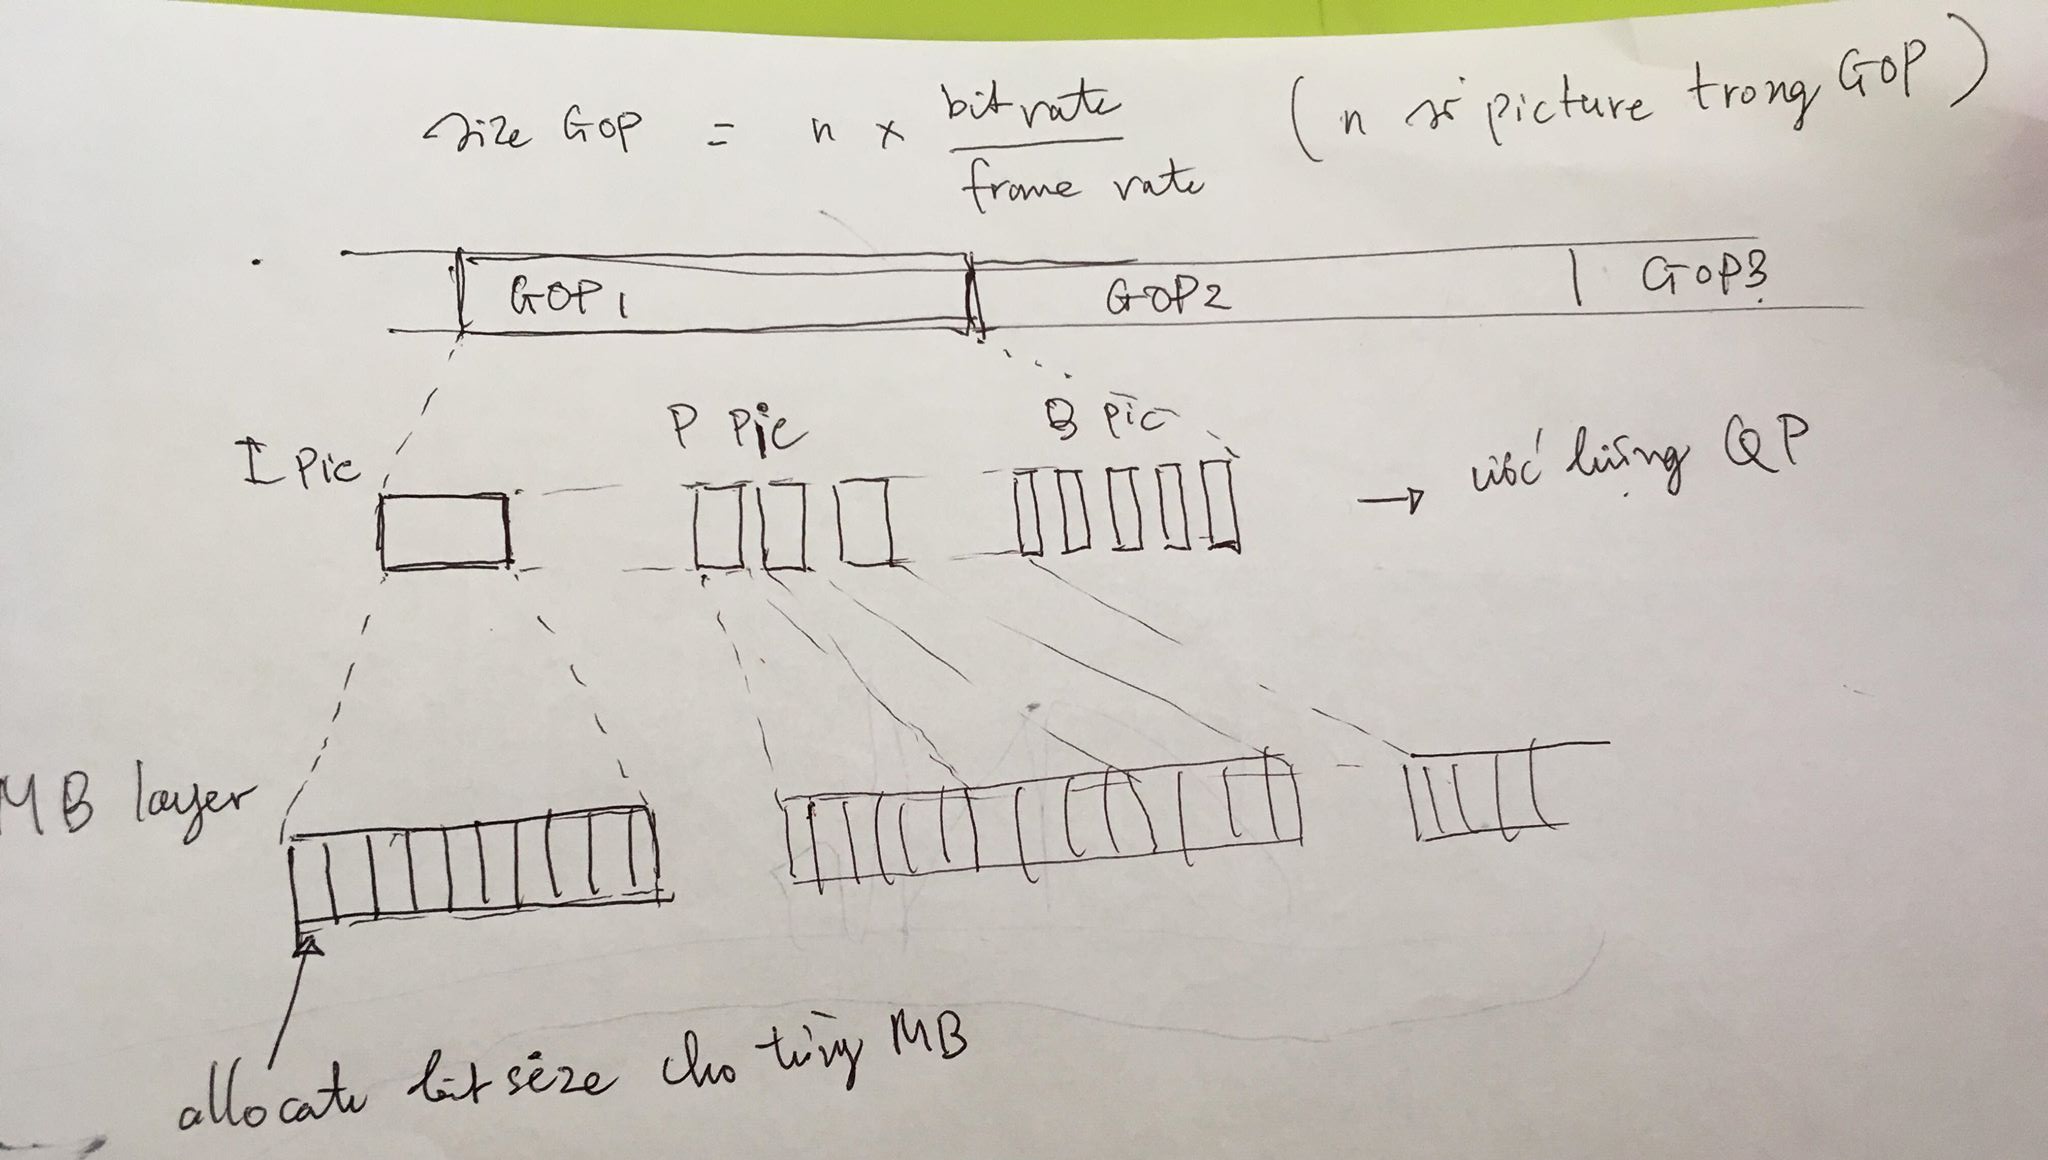 size GOP = n × bit rate / frame rate (n số picture trong GOP)
GOP1 GOP2 GOP3
I Pic P Pic B Pic → ước lượng QP
MB layer
allocate bit size cho từng MB